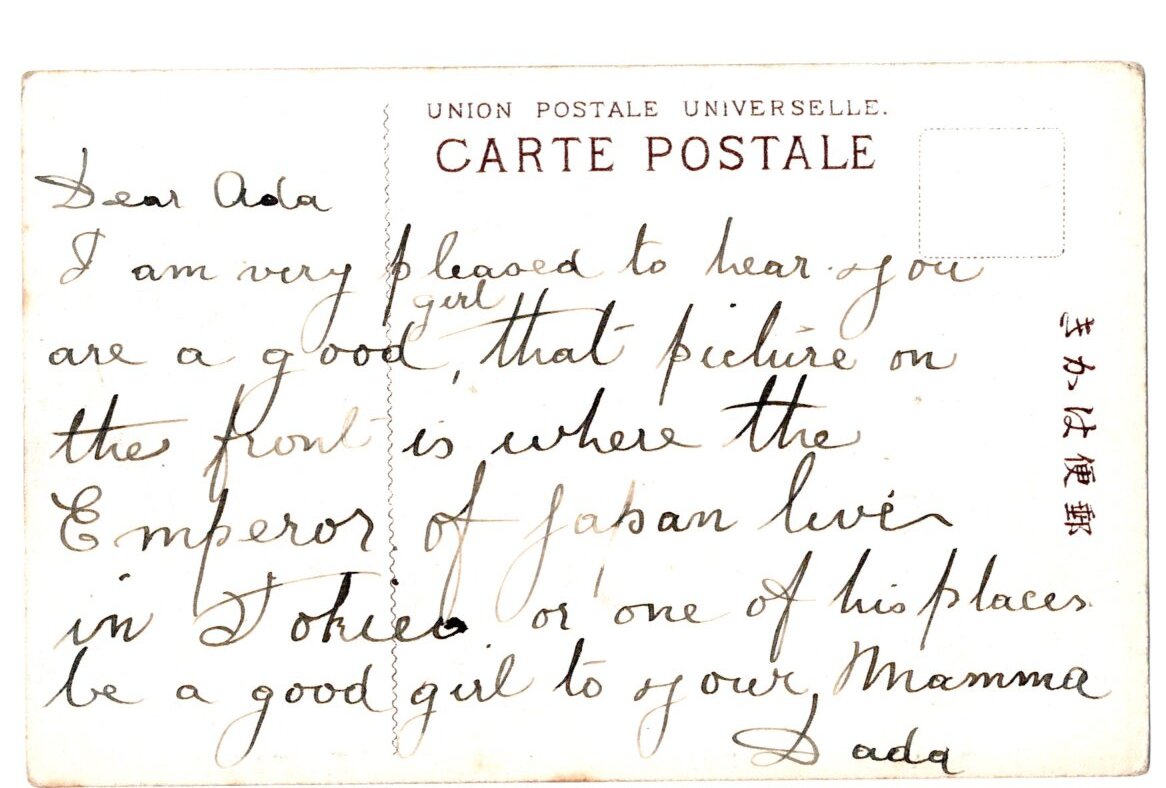 UNION POSTALE UNIVERSELLE.
CARTE POSTALE
Dear Ada
I am very pleased to hear you
are a good girl, that picture on
the front is where the
Emperor of Japan live
in Tokieo or one of his places
be a good girl to your Mamma
Dada
きかは便郵